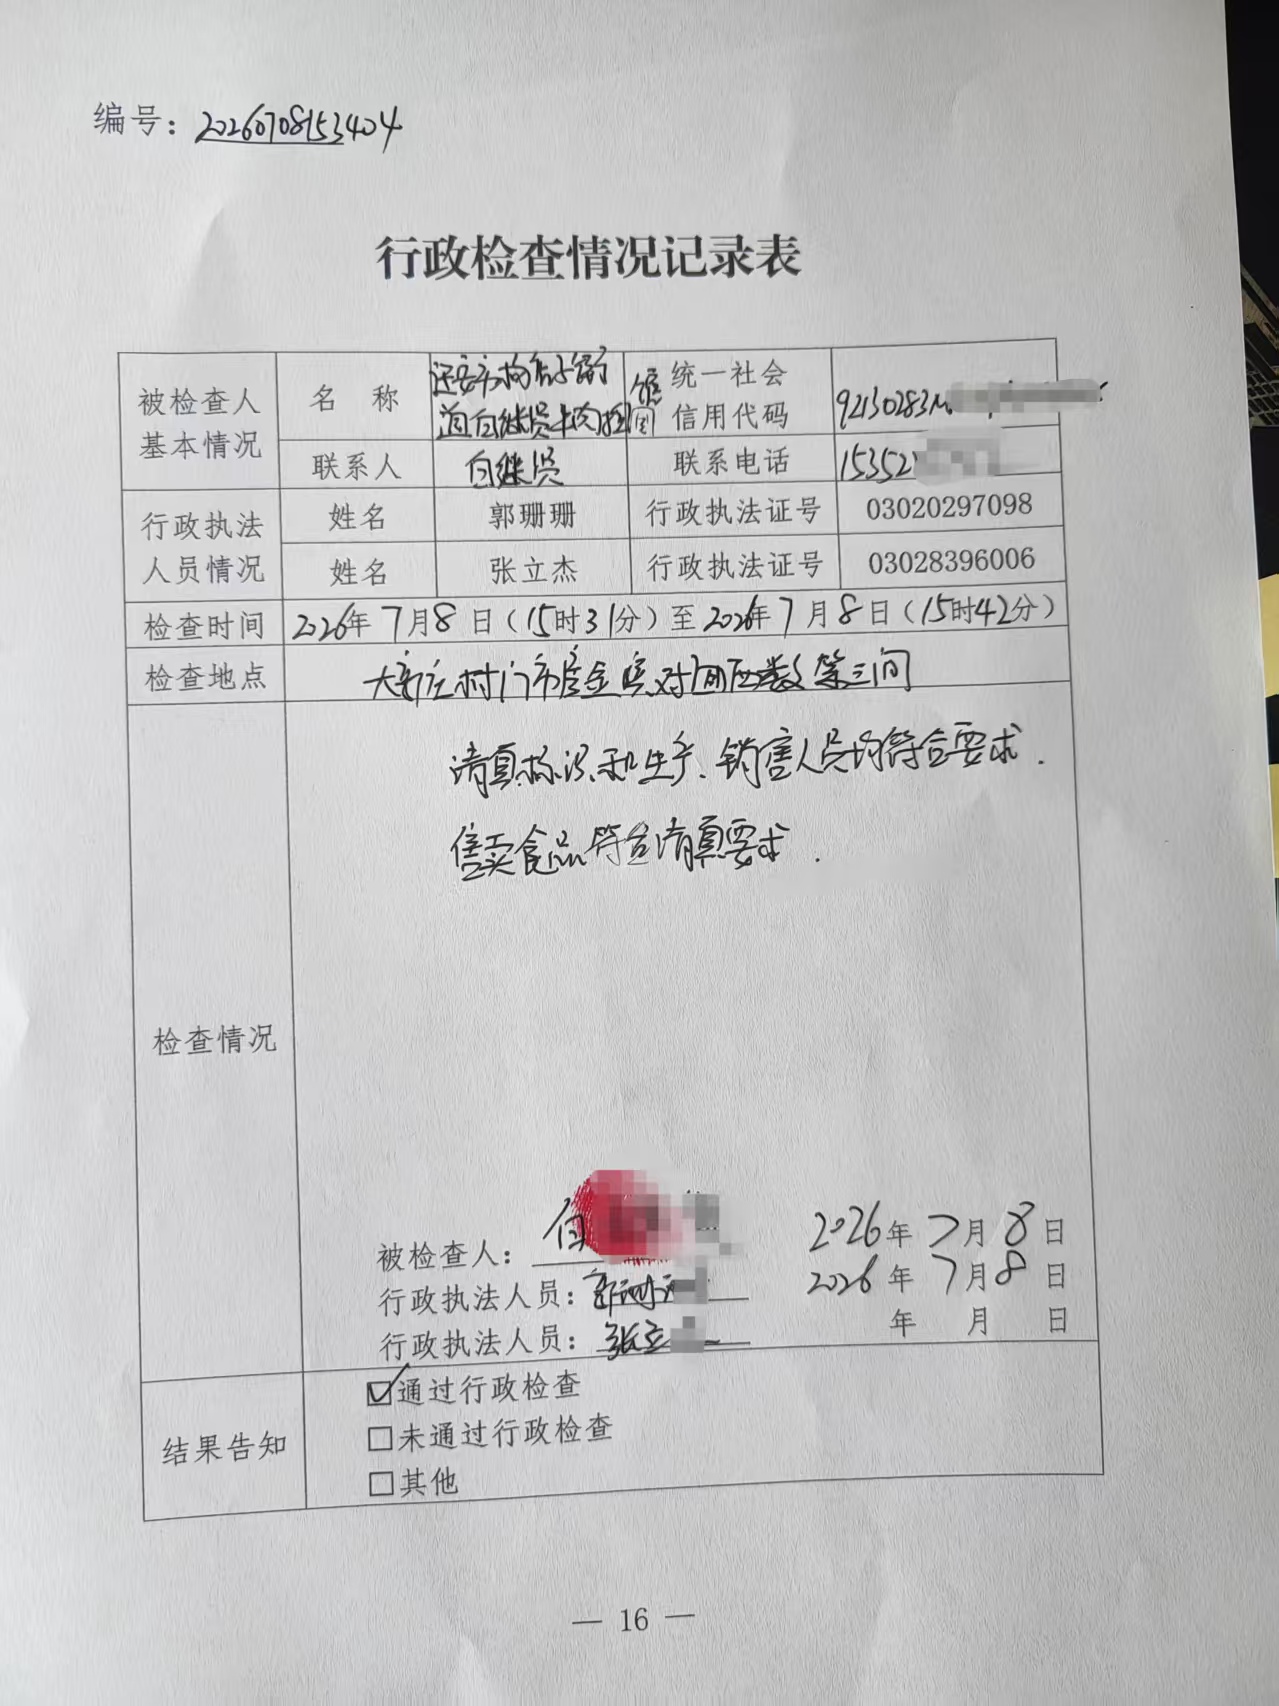 编号：20260708153404
行政检查情况记录表
被检查人基本情况 名称 迁安市杨店子镇 统一社会信用代码 92130283M
白继员牛肉
联系人 白继员 联系电话 15352
行政执法人员情况 姓名 郭珊珊 行政执法证号 03020297098
姓名 张立杰 行政执法证号 03028396006
检查时间 2026年7月8日（15时31分）至2026年7月8日（15时42分）
检查地点 大新庄村门市房 对面西数第三间
检查情况
清真标识和生产、销售人员均符合要求.
售卖食品符合清真要求.
被检查人：白 2026年7月8日
行政执法人员：郭 2026年7月8日
行政执法人员：张立 年 月 日
结果告知
☑通过行政检查
□未通过行政检查
□其他
— 16 —